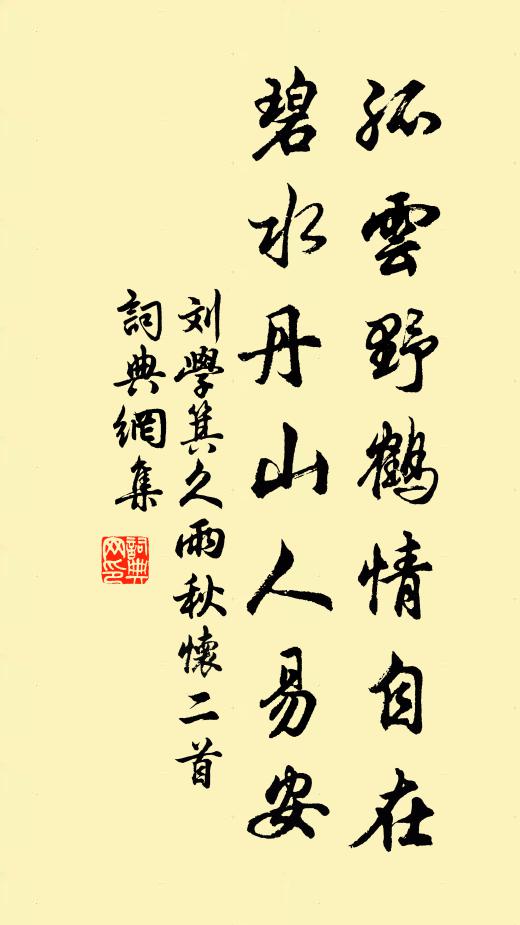 孤雲野鶴情自在
碧水丹山人易安
刘學箕久雨秋懷二首
詞典網集
詞典網印